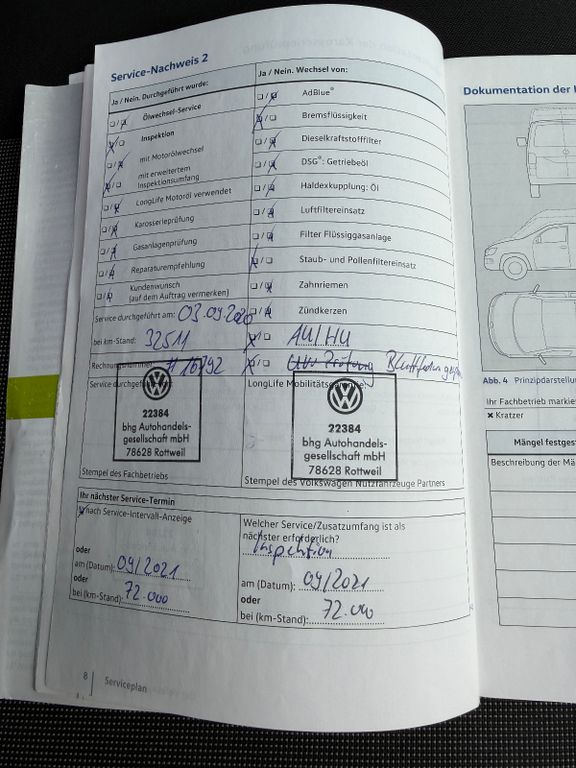 Service-Nachweis 2
Ja / Nein. Durchgeführt wurde:
Ja / Nein. Wechsel von:
Ölwechsel-Service
AdBlue®
Inspektion
Bremsflüssigkeit
mit Motorölwechsel
Dieselkraftstofffilter
mit erweitertem
Inspektionsumfang
DSG®: Getriebeöl
LongLife Motoröl verwendet
Haldexkupplung: Öl
Karosserieprüfung
Luftfiltereinsatz
Gasanlagenprüfung
Filter Flüssiggasanlage
Reparaturempfehlung
Staub- und Pollenfiltereinsatz
Kundenwunsch
(auf dem Auftrag vermerken)
Zahnriemen
Service durchgeführt am: 03.09.2020
Zündkerzen
bei km-Stand: 32511
AU/HU
Rechnungsnummer # 16792
Service durchgeführt
LongLife Mobilitätsgarantie:
22384
bhg Autohandels-
gesellschaft mbH
78628 Rottweil
22384
bhg Autohandels-
gesellschaft mbH
78628 Rottweil
Stempel des Fachbetriebs
Stempel des Volkswagen Nutzfahrzeuge Partners
Ihr nächster Service-Termin
nach Service-Intervall-Anzeige
Welcher Service/Zusatzumfang ist als
nächster erforderlich?
Inspektion
oder
am (Datum): 09/2021
am (Datum): 09/2021
oder
oder
bei (km-Stand): 72.000
bei (km-Stand): 72.000
8 Serviceplan
Dokumentation der
Abb. 4 Prinzipdarstellun
Ihr Fachbetrieb markie
× Kratzer
Mängel festges
Beschreibung der Mä